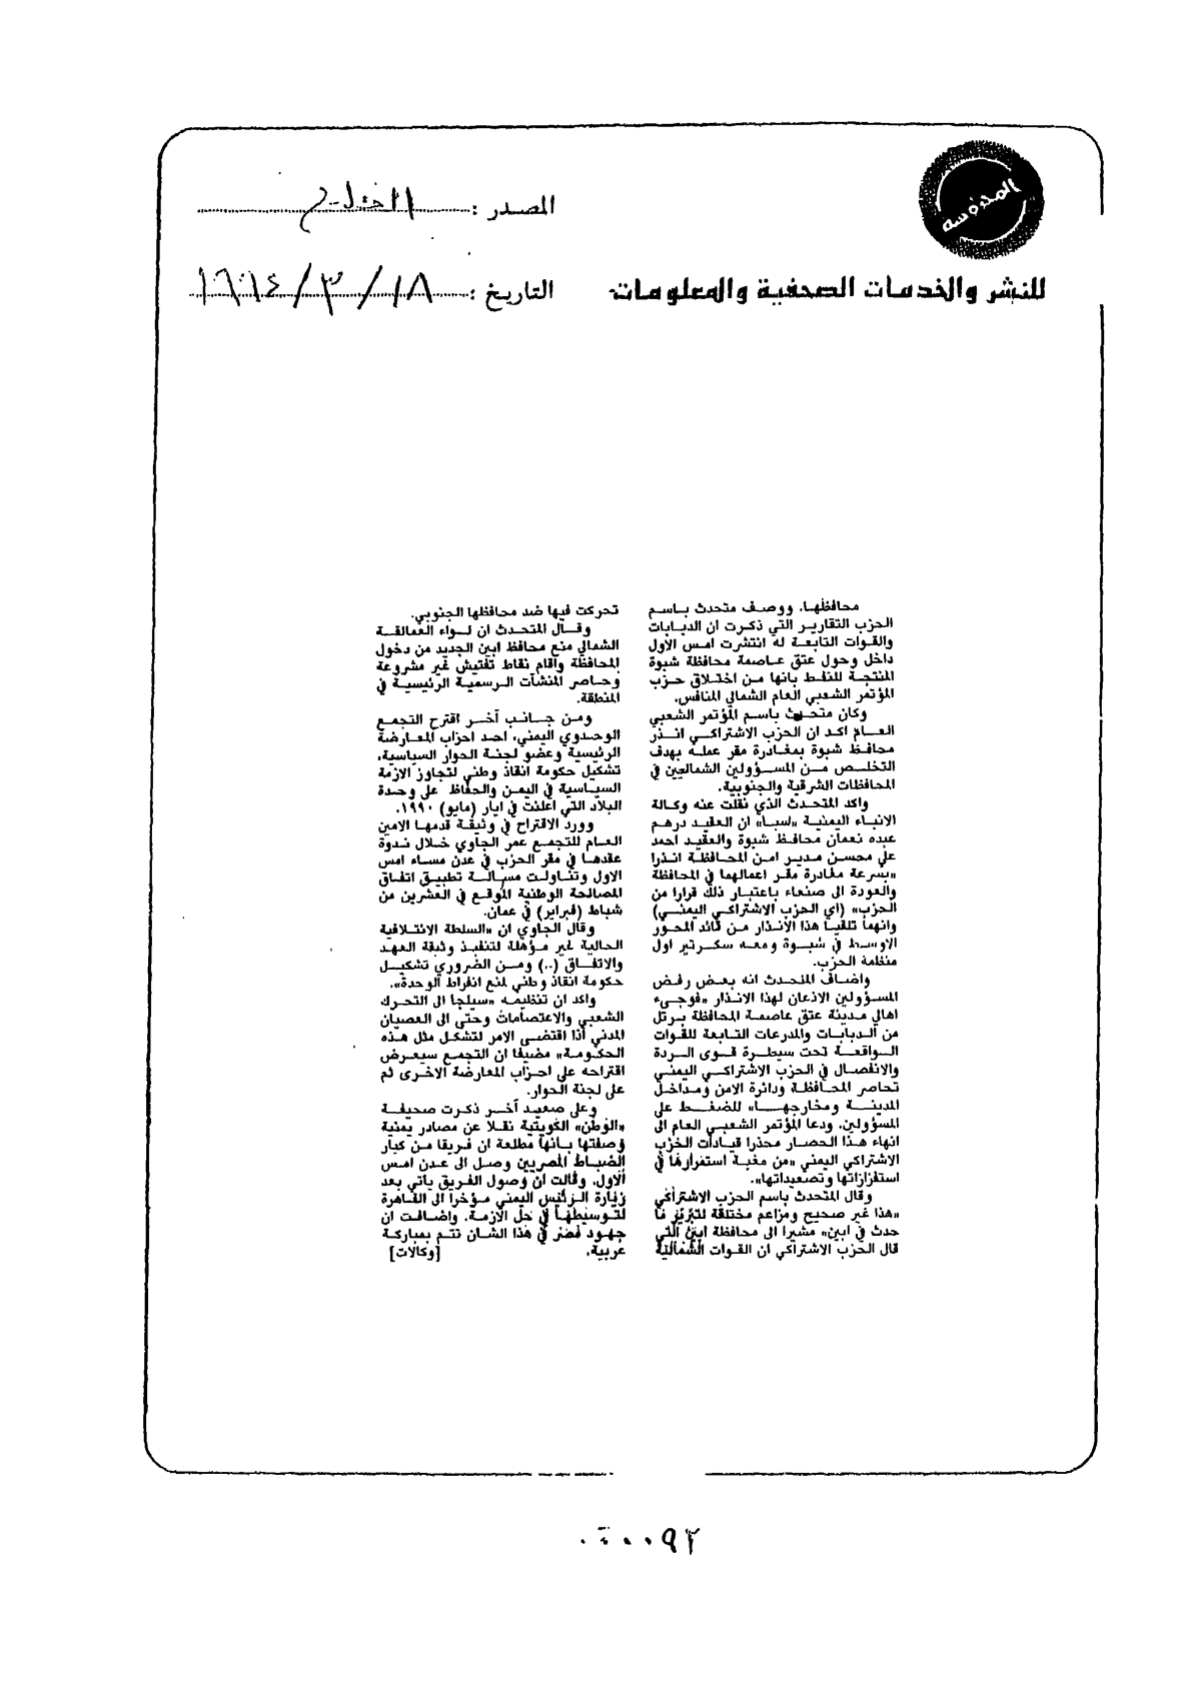 المحروسة
المصدر :
للنشر والخدمات الصحفية والمعلومات
التاريخ : ١٨ / ٣ / ١٩٩٤
محافظها. ووصف متحدث باسم
الحزب التقارير التي ذكرت ان الدبابات
والقوات التابعة له انتشرت امس الأول
داخل وحول عتق عاصمة محافظة شبوة
المنتجة للنفط بانها من اختلاق حزب
المؤتمر الشعبي العام الشمالي المنافس.
وكان متحدث باسم المؤتمر الشعبي
العام اكد ان الحزب الاشتراكي انذر
محافظ شبوة بمغادرة مقر عمله بهدف
التخلص من المسؤولين الشماليين في
المحافظات الشرقية والجنوبية.
واكد المتحدث الذي نقلت عنه وكالة
الانباء اليمنية «سبا» ان العقيد درهم
عبده نعمان محافظ شبوة والعقيد احمد
علي محسن مدير امن المحافظة انذرا
«بسرعة مغادرة مقر اعمالهما في المحافظة
والعودة الى صنعاء باعتبار ذلك قرارا من
الحزب» (اي الحزب الاشتراكي اليمني)
وانهما تلقيا هذا الانذار من قائد المحور
الاوسط في شبوة ومعه سكرتير اول
منظمة الحزب.
واضاف المتحدث انه بعض رفض
المسؤولين الاذعان لهذا الانذار «فوجىء
اهالي مدينة عتق عاصمة المحافظة برتل
من الدبابات والمدرعات التابعة للقوات
الواقعة تحت سيطرة قوى الردة
والانفصال في الحزب الاشتراكي اليمني
تحاصر المحافظة ودائرة الامن ومداخل
المدينة ومخارجها» للضغط على
المسؤولين. ودعا المؤتمر الشعبي العام الى
انهاء هذا الحصار محذرا قيادات الحزب
الاشتراكي اليمني «من مغبة استمرارها في
استفزازاتها وتصعيداتها».
وقال المتحدث باسم الحزب الاشتراكي
«هذا غير صحيح ومزاعم مختلقة لتبرير ما
حدث في ابين» مشيرا الى محافظة ابين التي
قال الحزب الاشتراكي ان القوات الشمالية
تحركت فيها ضد محافظها الجنوبي.
وقال المتحدث ان لواء العمالقة
الشمالي منع محافظ ابين الجديد من دخول
المحافظة واقام نقاط تفتيش غير مشروعة
وحاصر المنشآت الرسمية الرئيسية في
المنطقة.
ومن جانب آخر اقترح التجمع
الوحدوي اليمني، احد احزاب المعارضة
الرئيسية وعضو لجنة الحوار السياسية،
تشكيل حكومة انقاذ وطني لتجاوز الازمة
السياسية في اليمن والحفاظ على وحدة
البلاد التي اعلنت في ايار (مايو) ١٩٩٠.
وورد الاقتراح في وثيقة قدمها الامين
العام للتجمع عمر الجاوي خلال ندوة
عقدها في مقر الحزب في عدن مساء امس
الاول وتناولت مسالة تطبيق اتفاق
المصالحة الوطنية الموقع في العشرين من
شباط (فبراير) في عمان.
وقال الجاوي ان «السلطة الائتلافية
الحالية غير مؤهلة لتنفيذ وثيقة العهد
والاتفاق (..) ومن الضروري تشكيل
حكومة انقاذ وطني لمنع انفراط الوحدة».
واكد ان تنظيمه «سيلجا الى التحرك
الشعبي والاعتصامات وحتى الى العصيان
المدني اذا اقتضى الامر لتشكل مثل هذه
الحكومة» مضيفا ان التجمع سيعرض
اقتراحه على احزاب المعارضة الاخرى ثم
على لجنة الحوار.
وعلى صعيد آخر ذكرت صحيفة
«الوطن» الكويتية نقلا عن مصادر يمنية
وصفتها بانها مطلعة ان فريقا من كبار
الضباط المصريين وصل الى عدن امس
الاول. وقالت ان وصول الفريق ياتي بعد
زيارة الرئيس اليمني مؤخرا الى القاهرة
لتوسيطها في حل الازمة. واضافت ان
جهود مصر في هذا الشان تتم بمباركة
عربية. [وكالات]